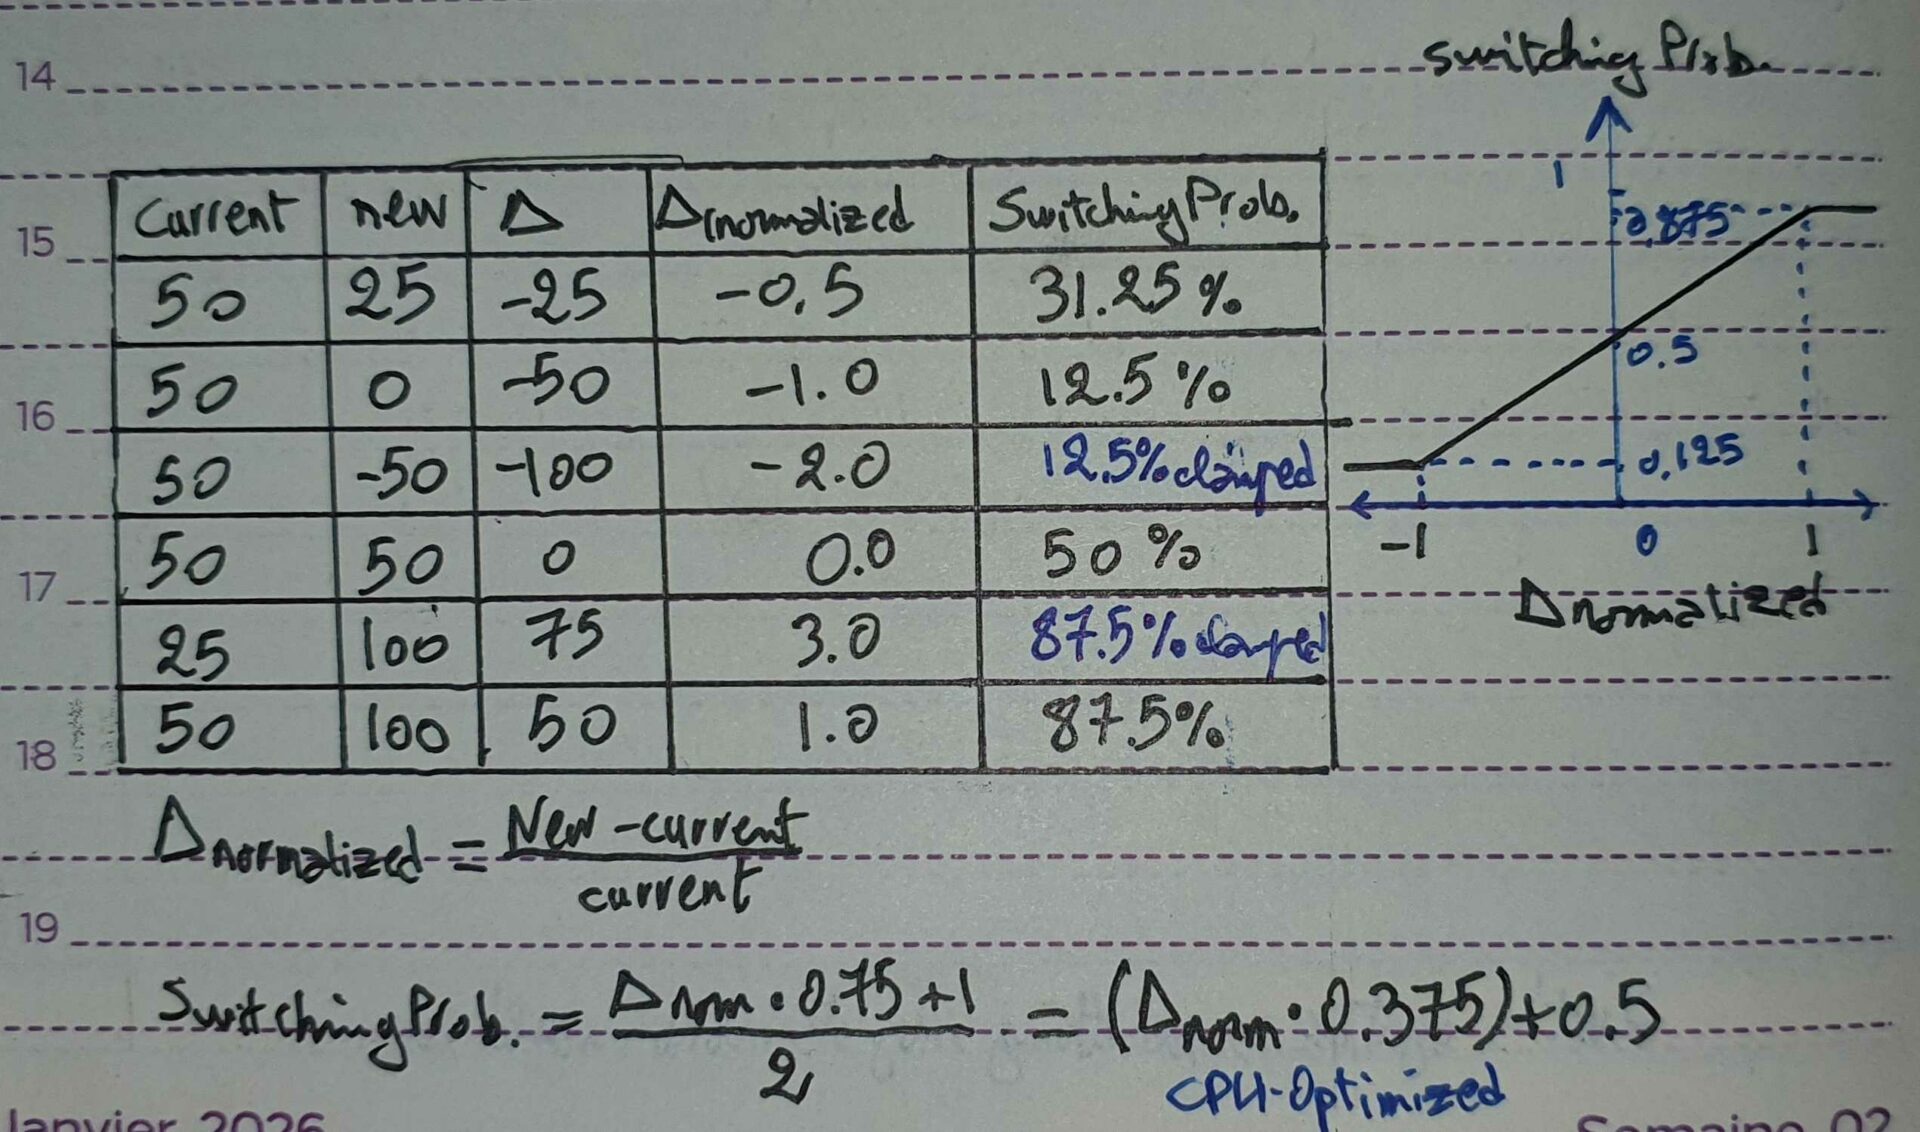 switching Prob.
14
1
Current new Δ Δ(normalized Switching Prob.
0.875
15
50 25 -25 -0.5 31.25 %
0.5
50 0 -50 -1.0 12.5 %
16
50 -50 -100 -2.0 12.5% clamped
0.125
-1 0 1
50 50 0 0.0 50 %
17
Δ normalized
25 100 75 3.0 87.5% clamped
50 100 50 1.0 87.5%
18
Δ normalized = New - current
current
19
Switching Prob. = Δ norm • 0.75 + 1 = (Δ norm • 0.375) + 0.5
2
CPU-Optimized
Janvier 2026 Semaine 02